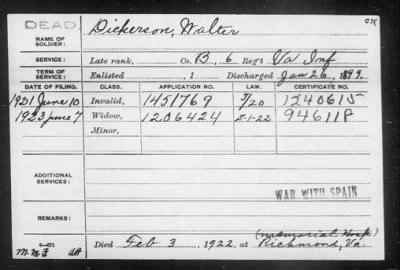 DEAD. Dickerson, Walter
NAME OF SOLDIER:
SERVICE: Late rank, Co. B, 6 Reg't Va Inf
TERM OF SERVICE: Enlisted , 1 Discharged Jan 26, 1899.
DATE OF FILING. CLASS. APPLICATION NO. LAW. CERTIFICATE NO.
1921 June 10 Invalid, 1451769 7/20 1240615
1923 June 7 Widow, 1206424 5-1-22 946118
Minor,
ADDITIONAL SERVICES: WAR WITH SPAIN
REMARKS:
(Memorial Hosp)
Died Feb 3, 1922, at Richmond, Va.